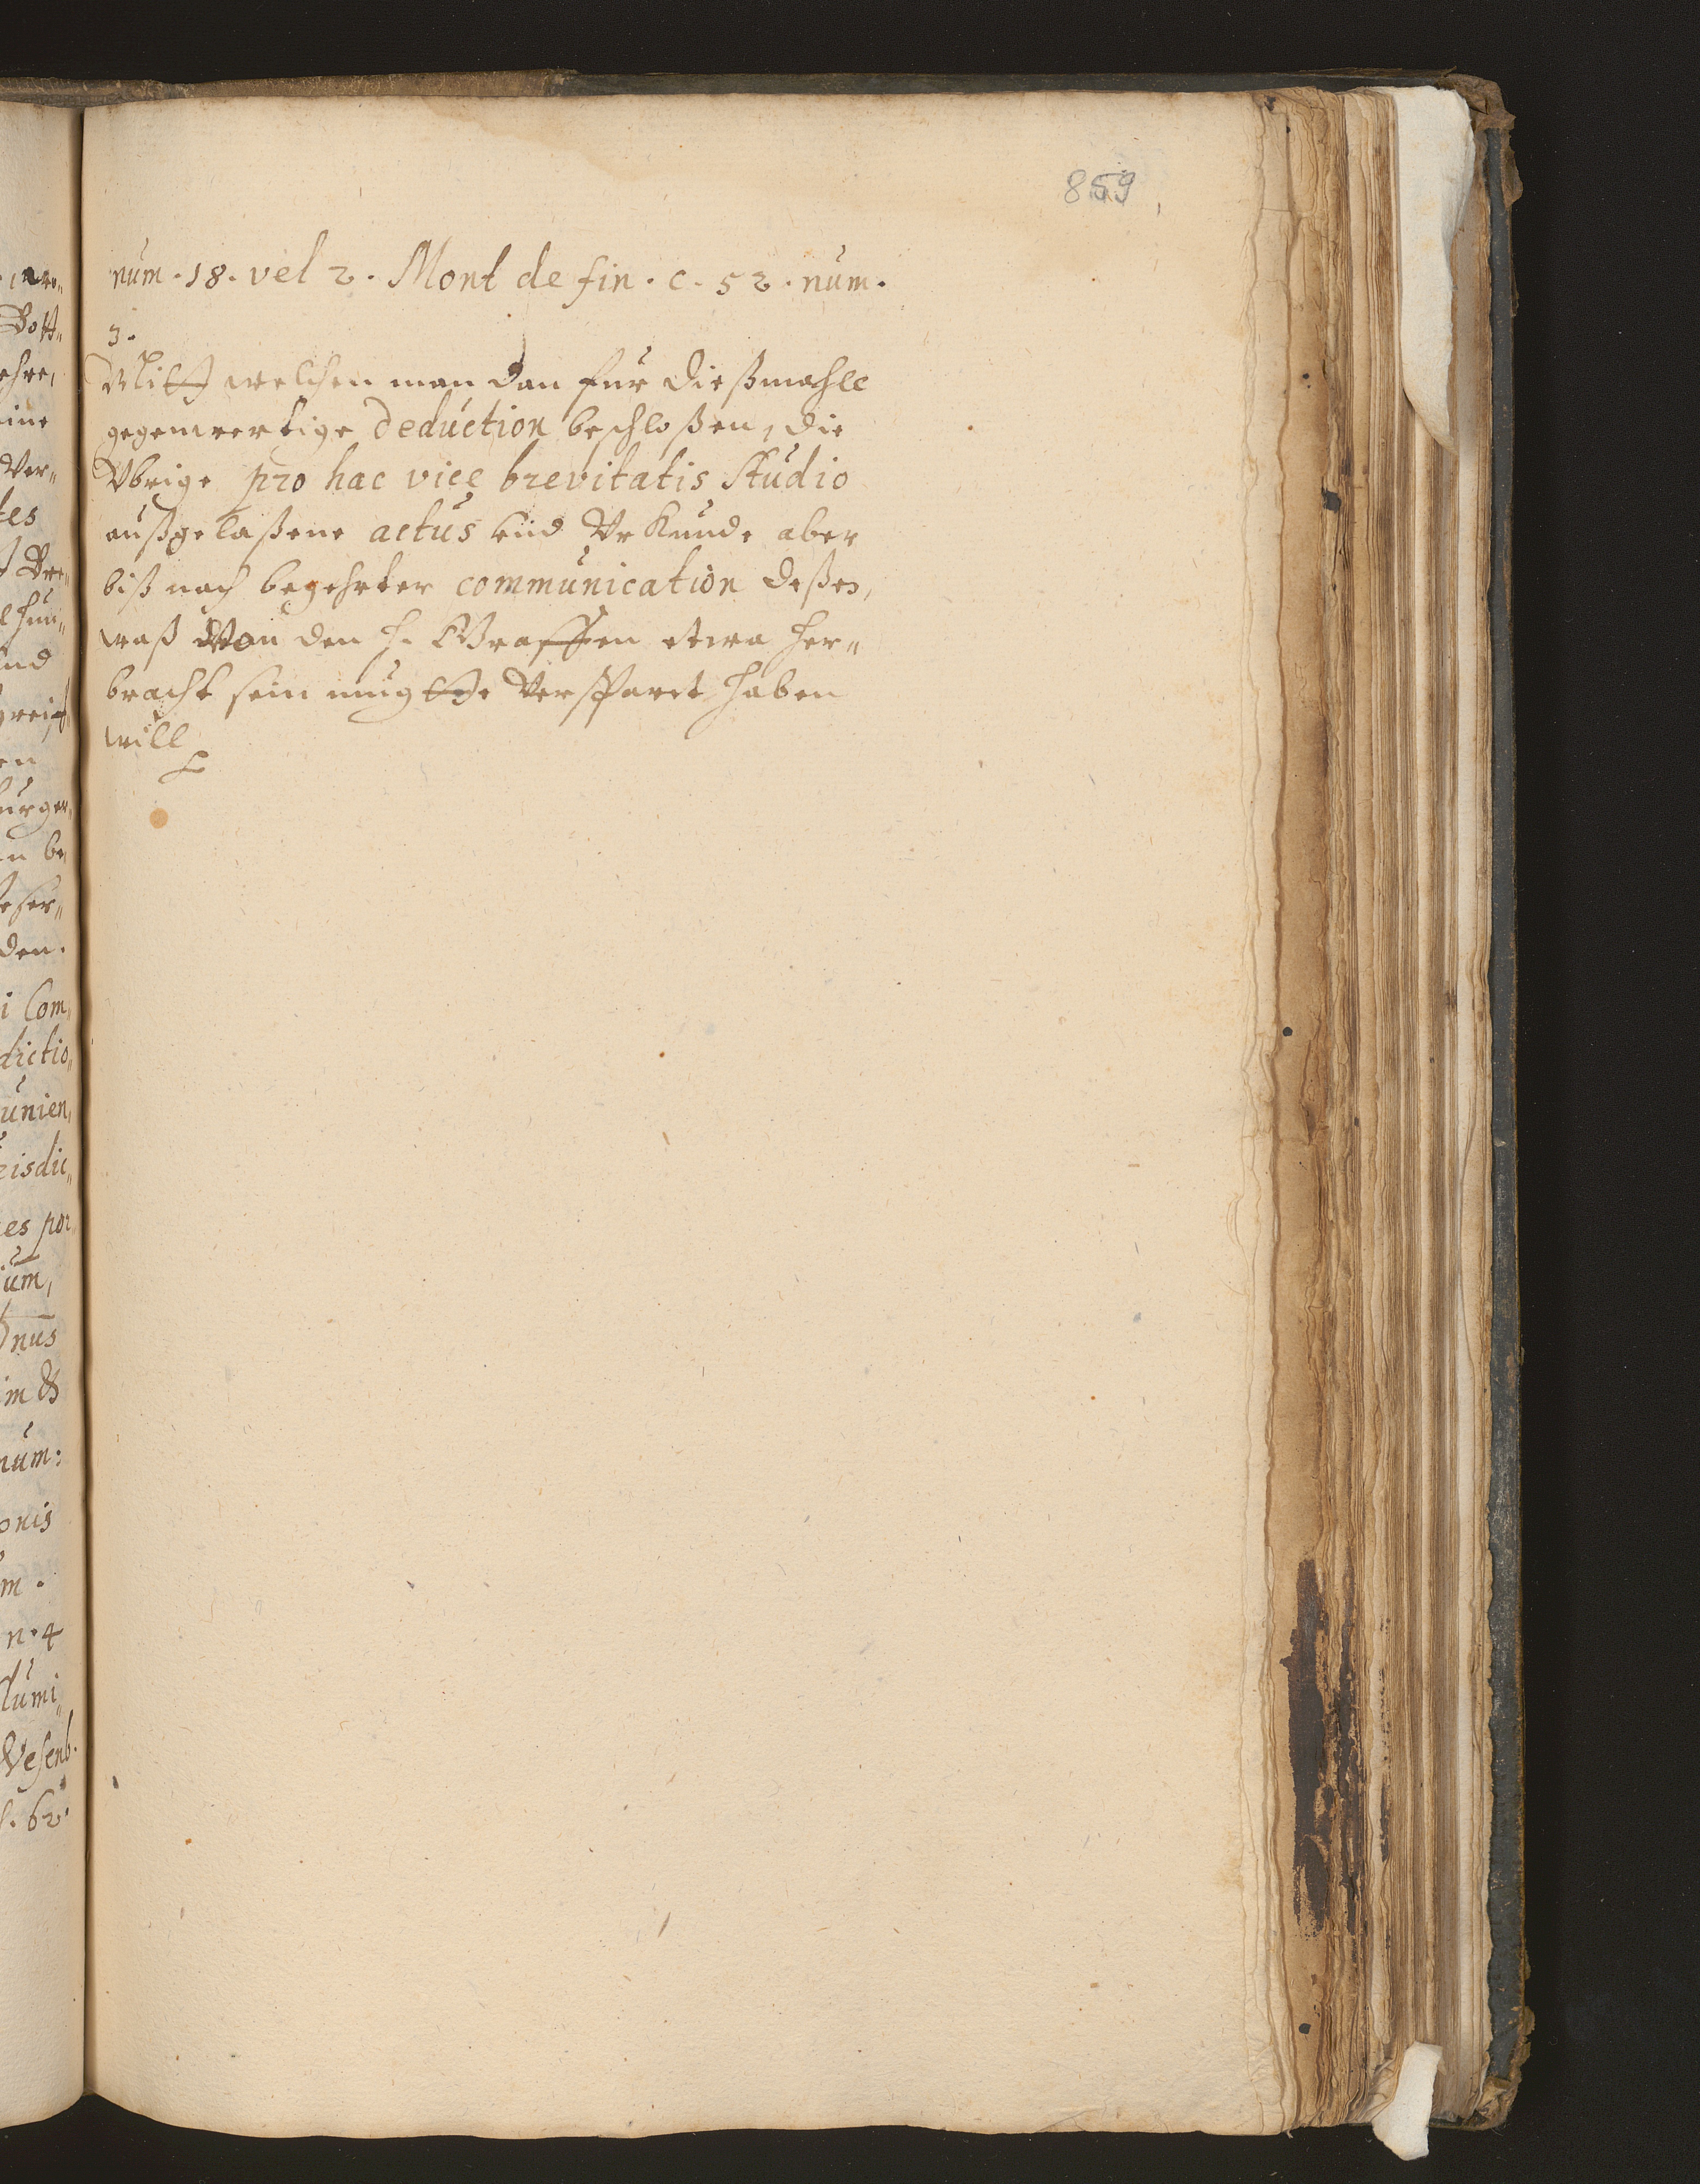 859
num. 18. vel 2. Mont de fin. c. 52. num.
3.
Mitt welchen man dan für dießmahle
gegenwertige deduction beschloßen, die
Vbrige pro hac vice brevitatis studio
außgelaßene actus vnd Vrkunde aber
biß nach begehrter communication deßen,
waß Von den h. Graffen etwa her„
bracht sein mugtte Versparet haben
will
ehre,
eine
Ver„
tes
den.
i Com„
dictio„
unien„
risdic„
es por„
um,
nus
im &
num:
onis
m.
n. 4
lumi„
Wesenb.
s. 62.